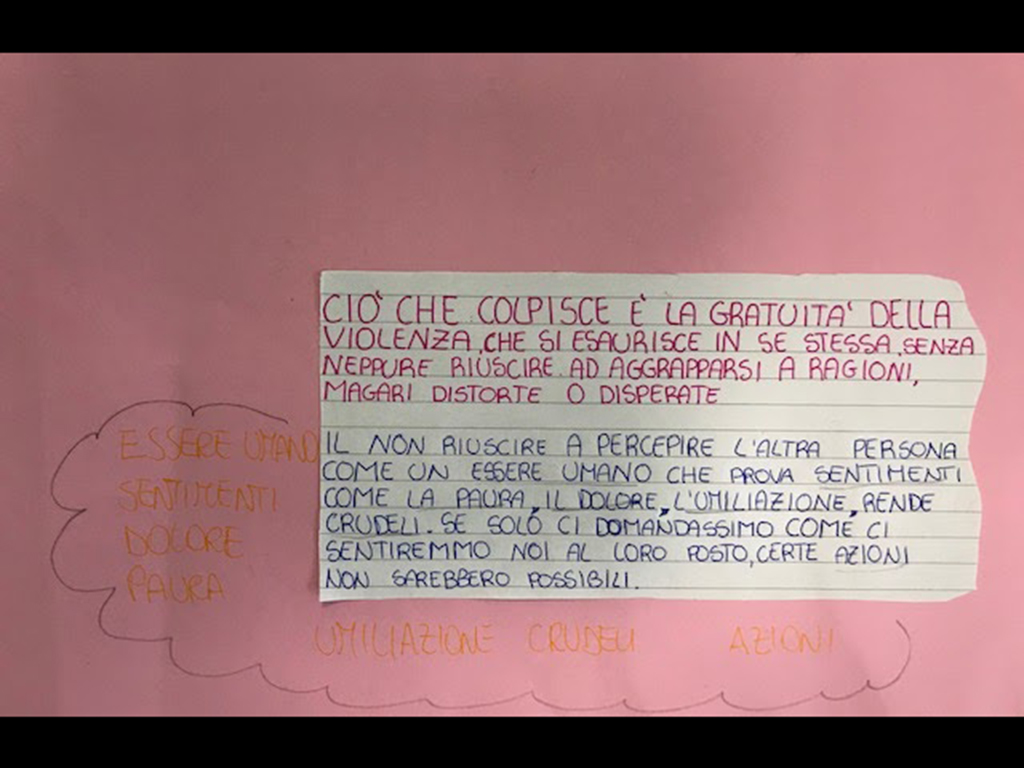 CIO' CHE COLPISCE E' LA GRATUITA' DELLA
VIOLENZA, CHE SI ESAURISCE IN SE STESSA, SENZA
NEPPURE RIUSCIRE AD AGGRAPPARSI A RAGIONI,
MAGARI DISTORTE O DISPERATE
IL NON RIUSCIRE A PERCEPIRE L'ALTRA PERSONA
COME UN ESSERE UMANO CHE PROVA SENTIMENTI
COME LA PAURA, IL DOLORE, L'UMILIAZIONE, RENDE
CRUDELI. SE SOLO CI DOMANDASSIMO COME CI
SENTIREMMO NOI AL LORO POSTO, CERTE AZIONI
NON SAREBBERO POSSIBILI.
ESSERE UMANO
SENTIMENTI
DOLORE
PAURA
UMILIAZIONE CRUDELI AZIONI